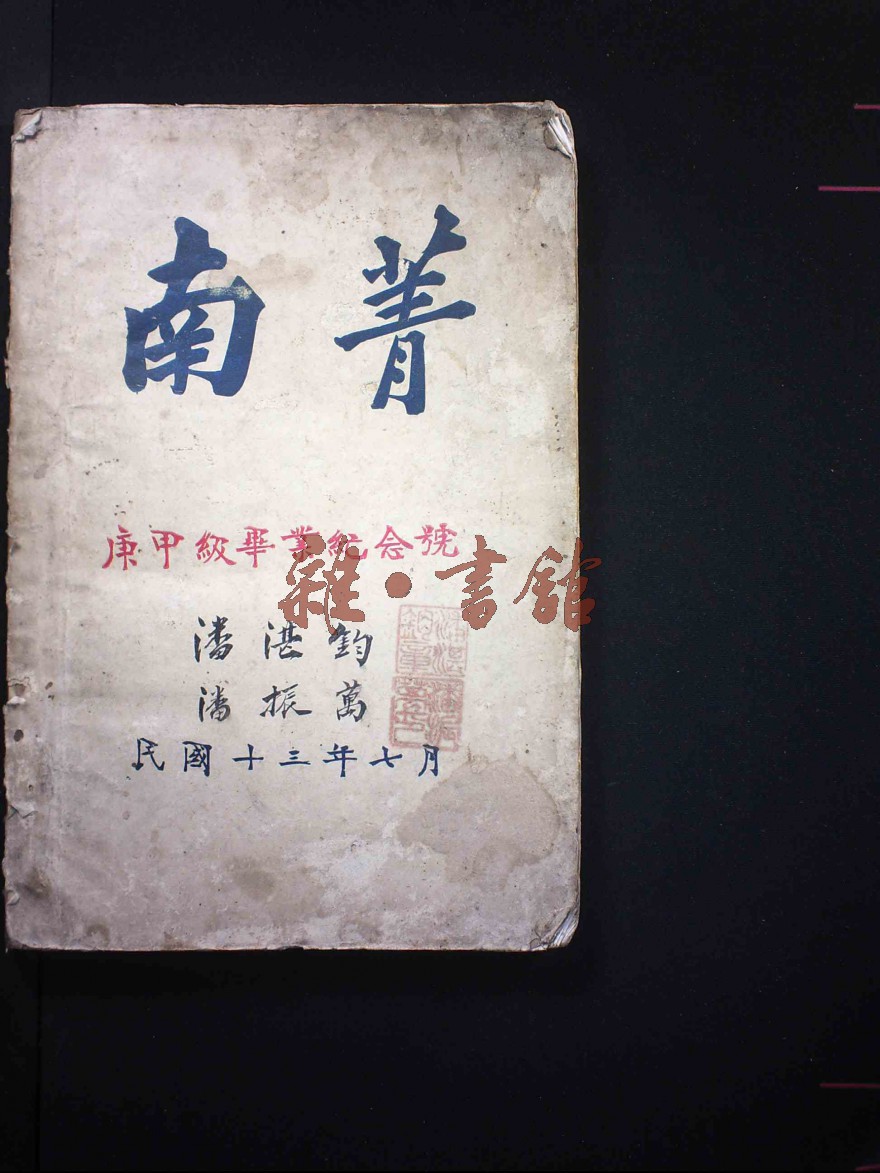 南菁
庚甲級畢業紀念號
雜·書館
潘湛鈞
潘振萬
民國十三年七月